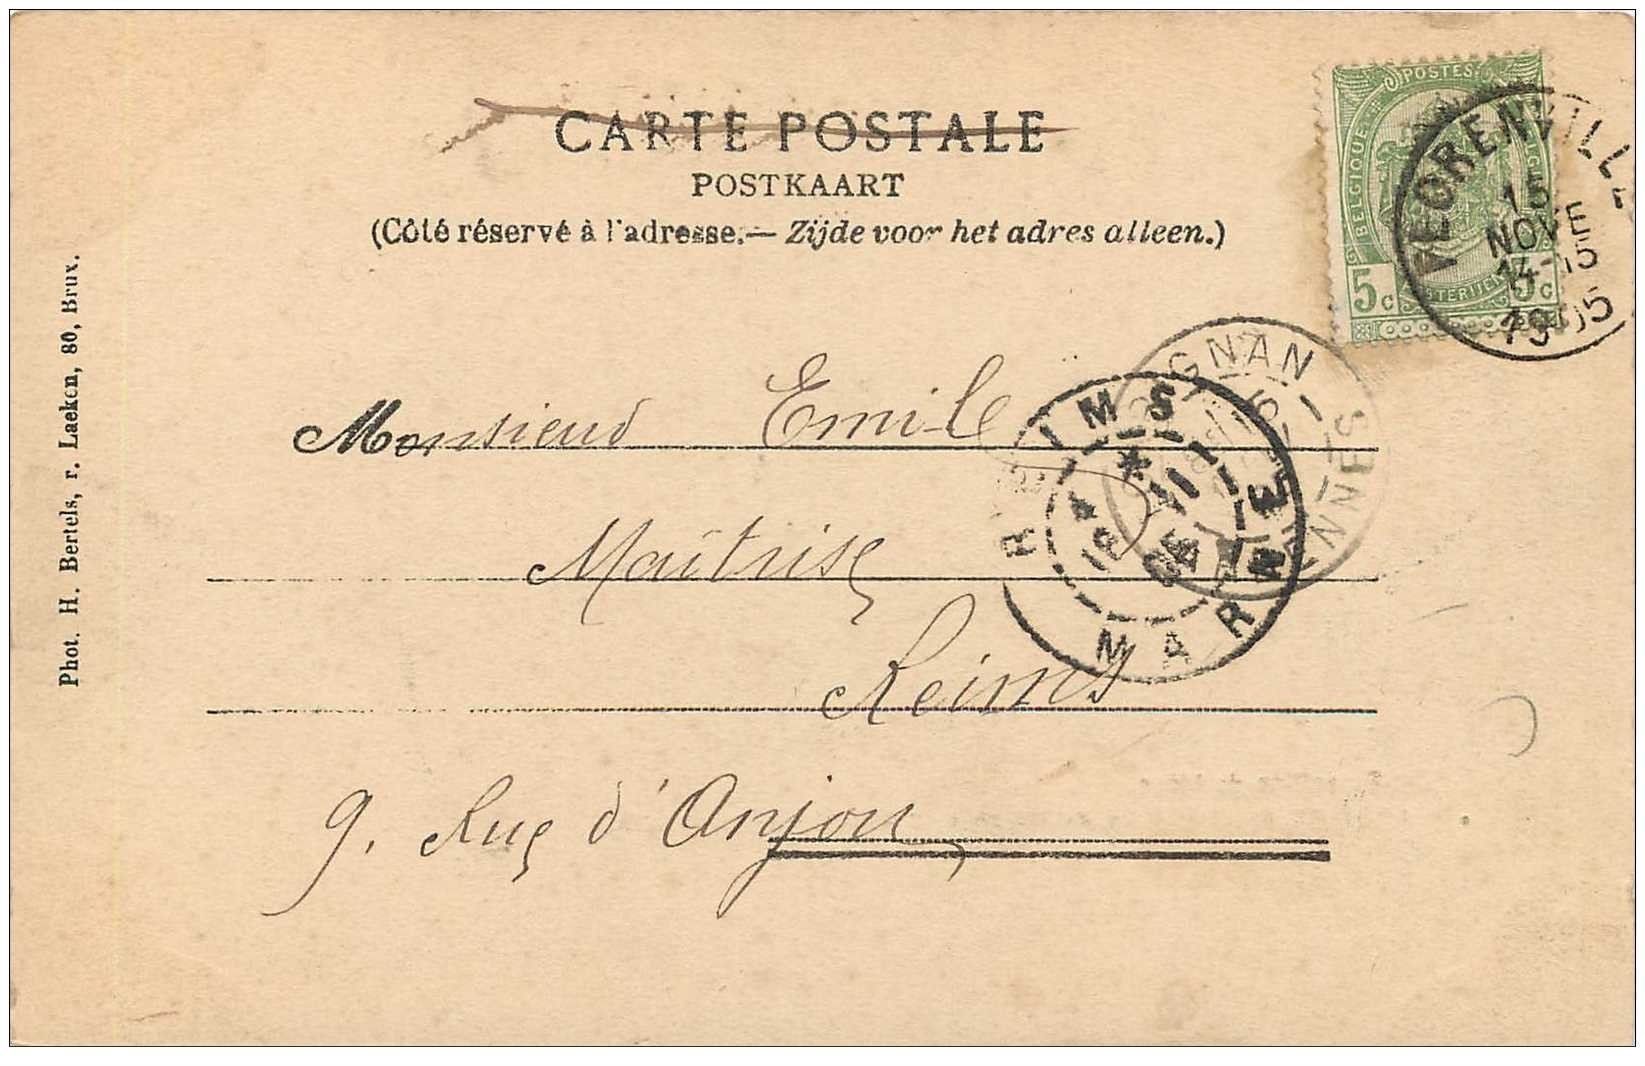 CARTE POSTALE
POSTKAART
(Côté réservé à l'adresse.— Zijde voor het adres alleen.)
Phot. H. Bertels, r. Laeken, 80, Brux.
POSTES
BELGIQUE
5c 5c
FLORENVILLE
15
NOVE
14-15
1905
GNAN
ENNES
REIMS
MARNE
Monsieur Emile
Maîtrise
Reims
9. Rue d'Anjou